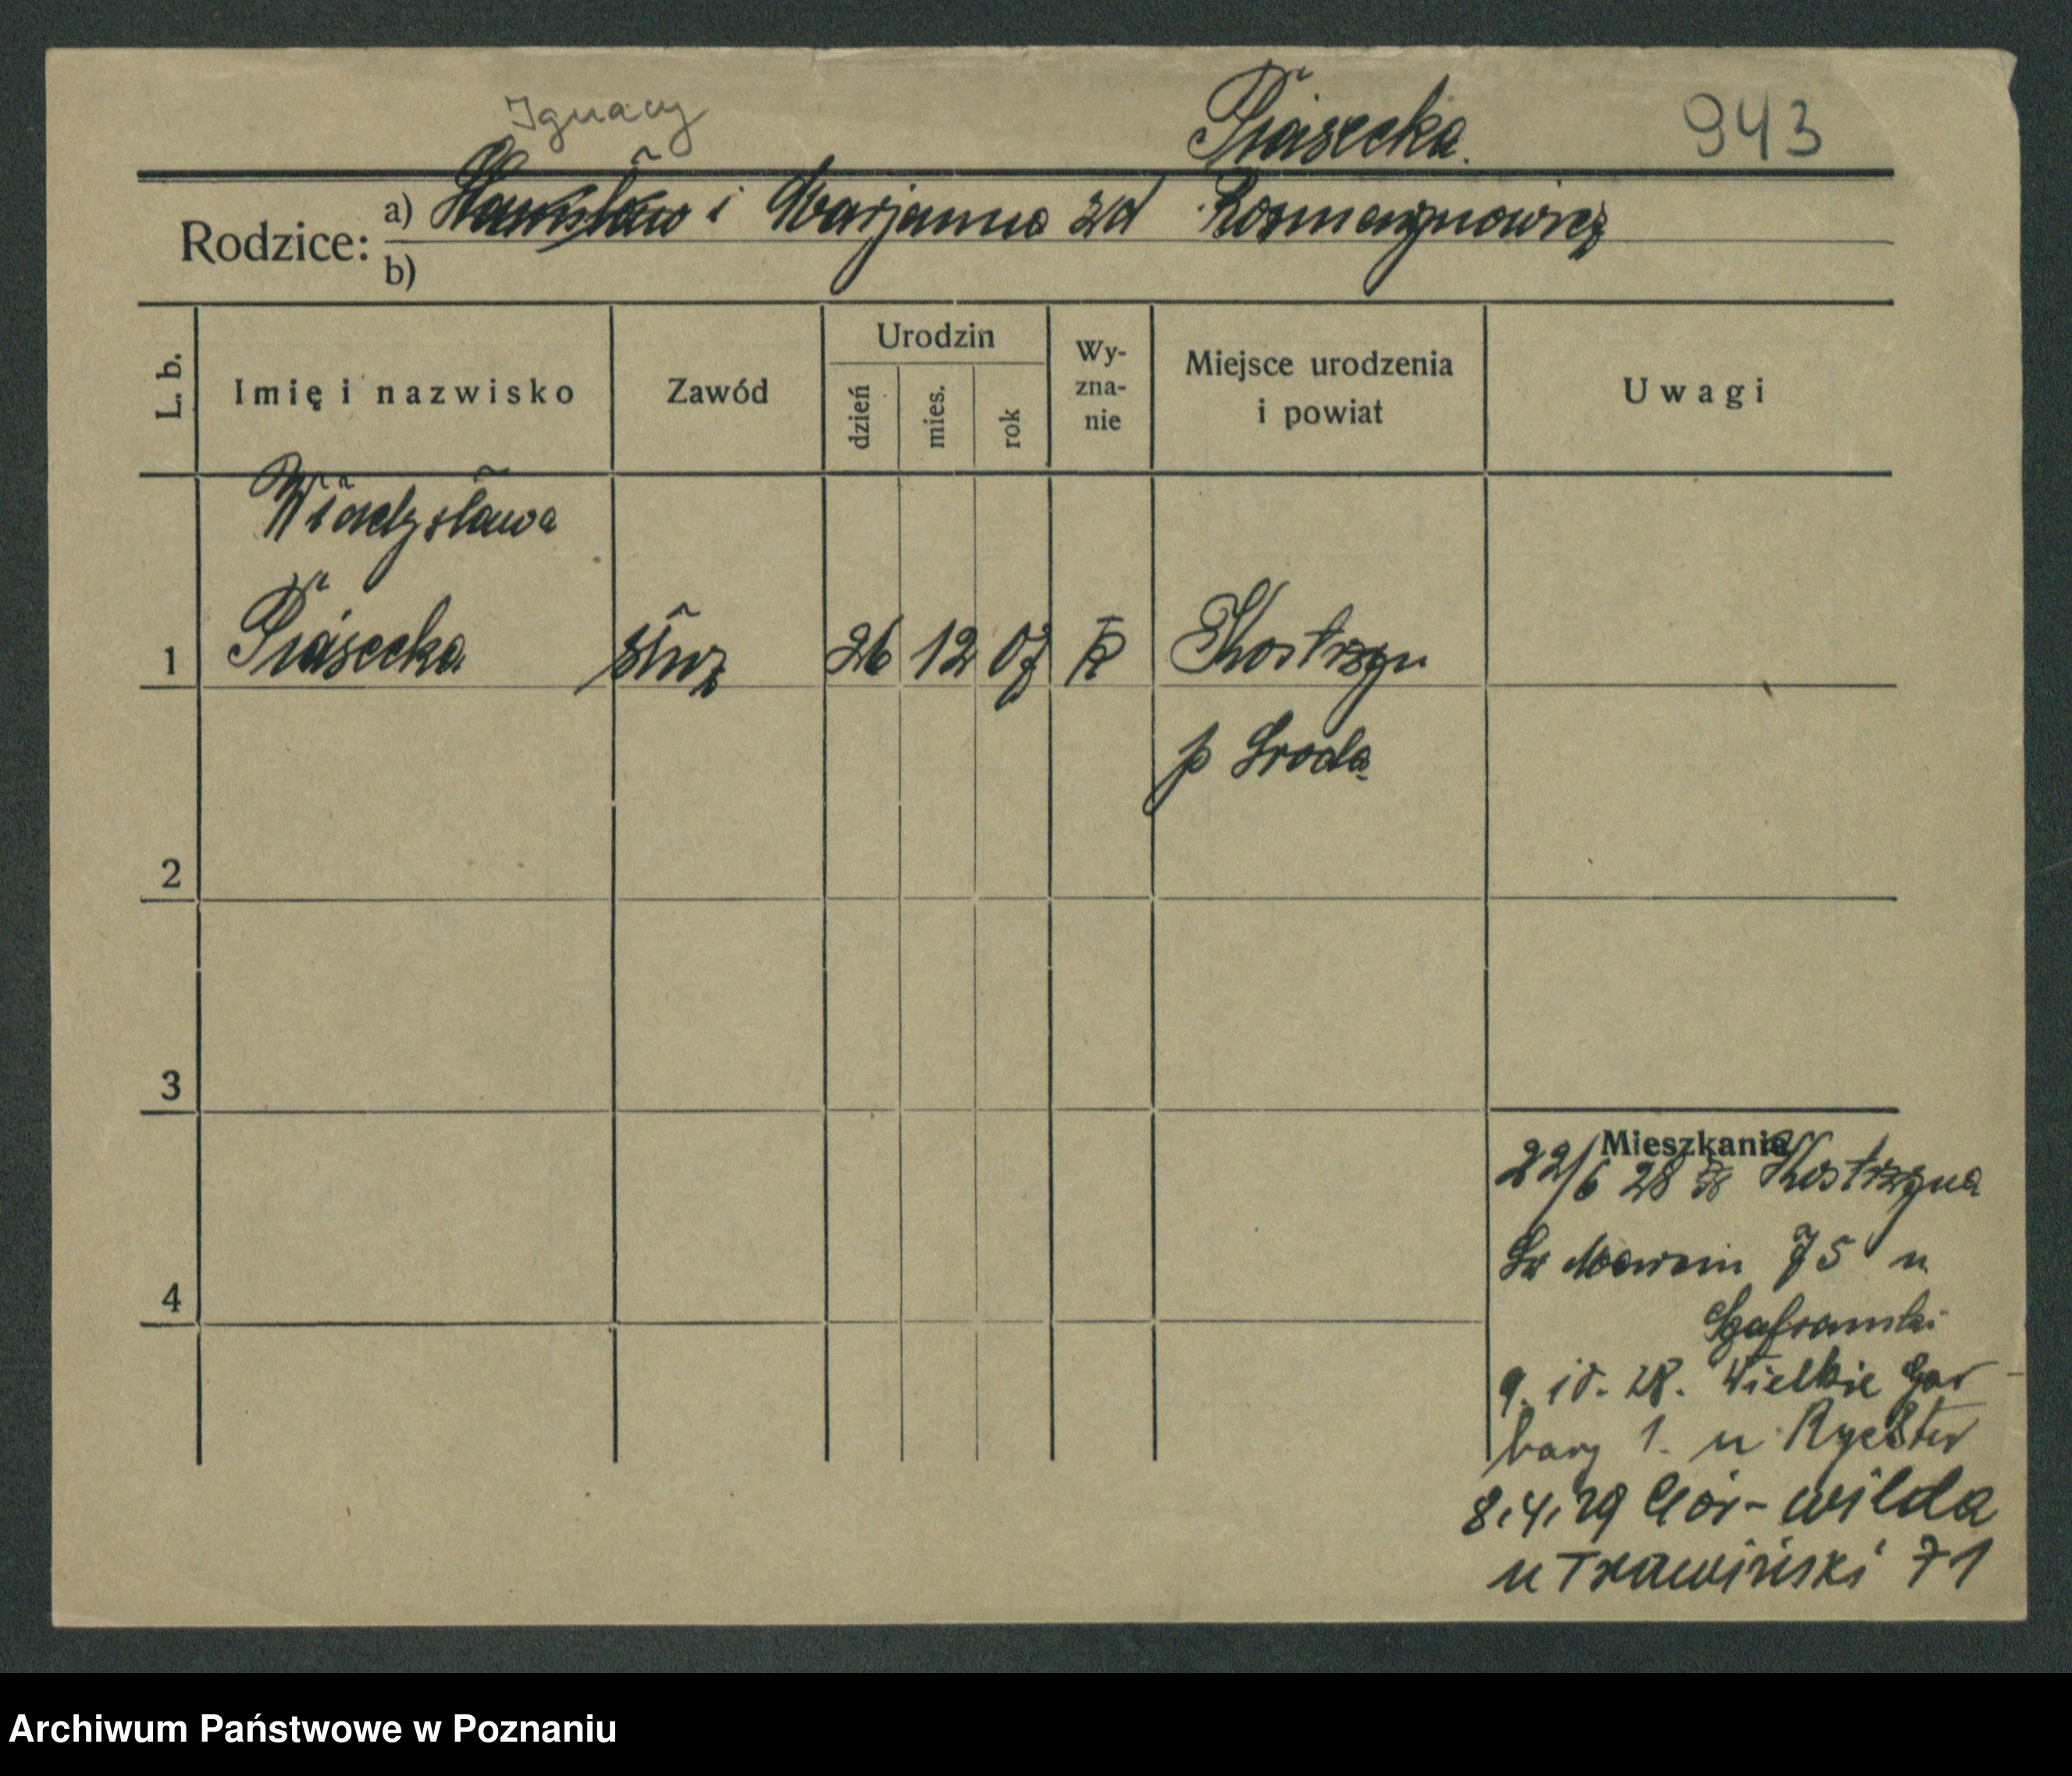 Ignacy
Piasecka.
943
Rodzice:
a) Stanisław i Marjanna zd Rozmarynowicz
b)
L. b.
Imię i nazwisko
Zawód
Urodzin
dzień
mies.
rok
Wy-
zna-
nie
Miejsce urodzenia
i powiat
Uwagi
Władysława
1 Piasecka służ 26 12 07 k Kostrzyn
p Środa
2
3
4
Mieszkanie
22/6 28 Kostrzyna
Św Marcin 75 u
Szafrański
9. 10. 28. Wielkie Gar-
bary 1. u Rychter
8.4.29 Gór- wilda
u Trawiński 71
Archiwum Państwowe w Poznaniu